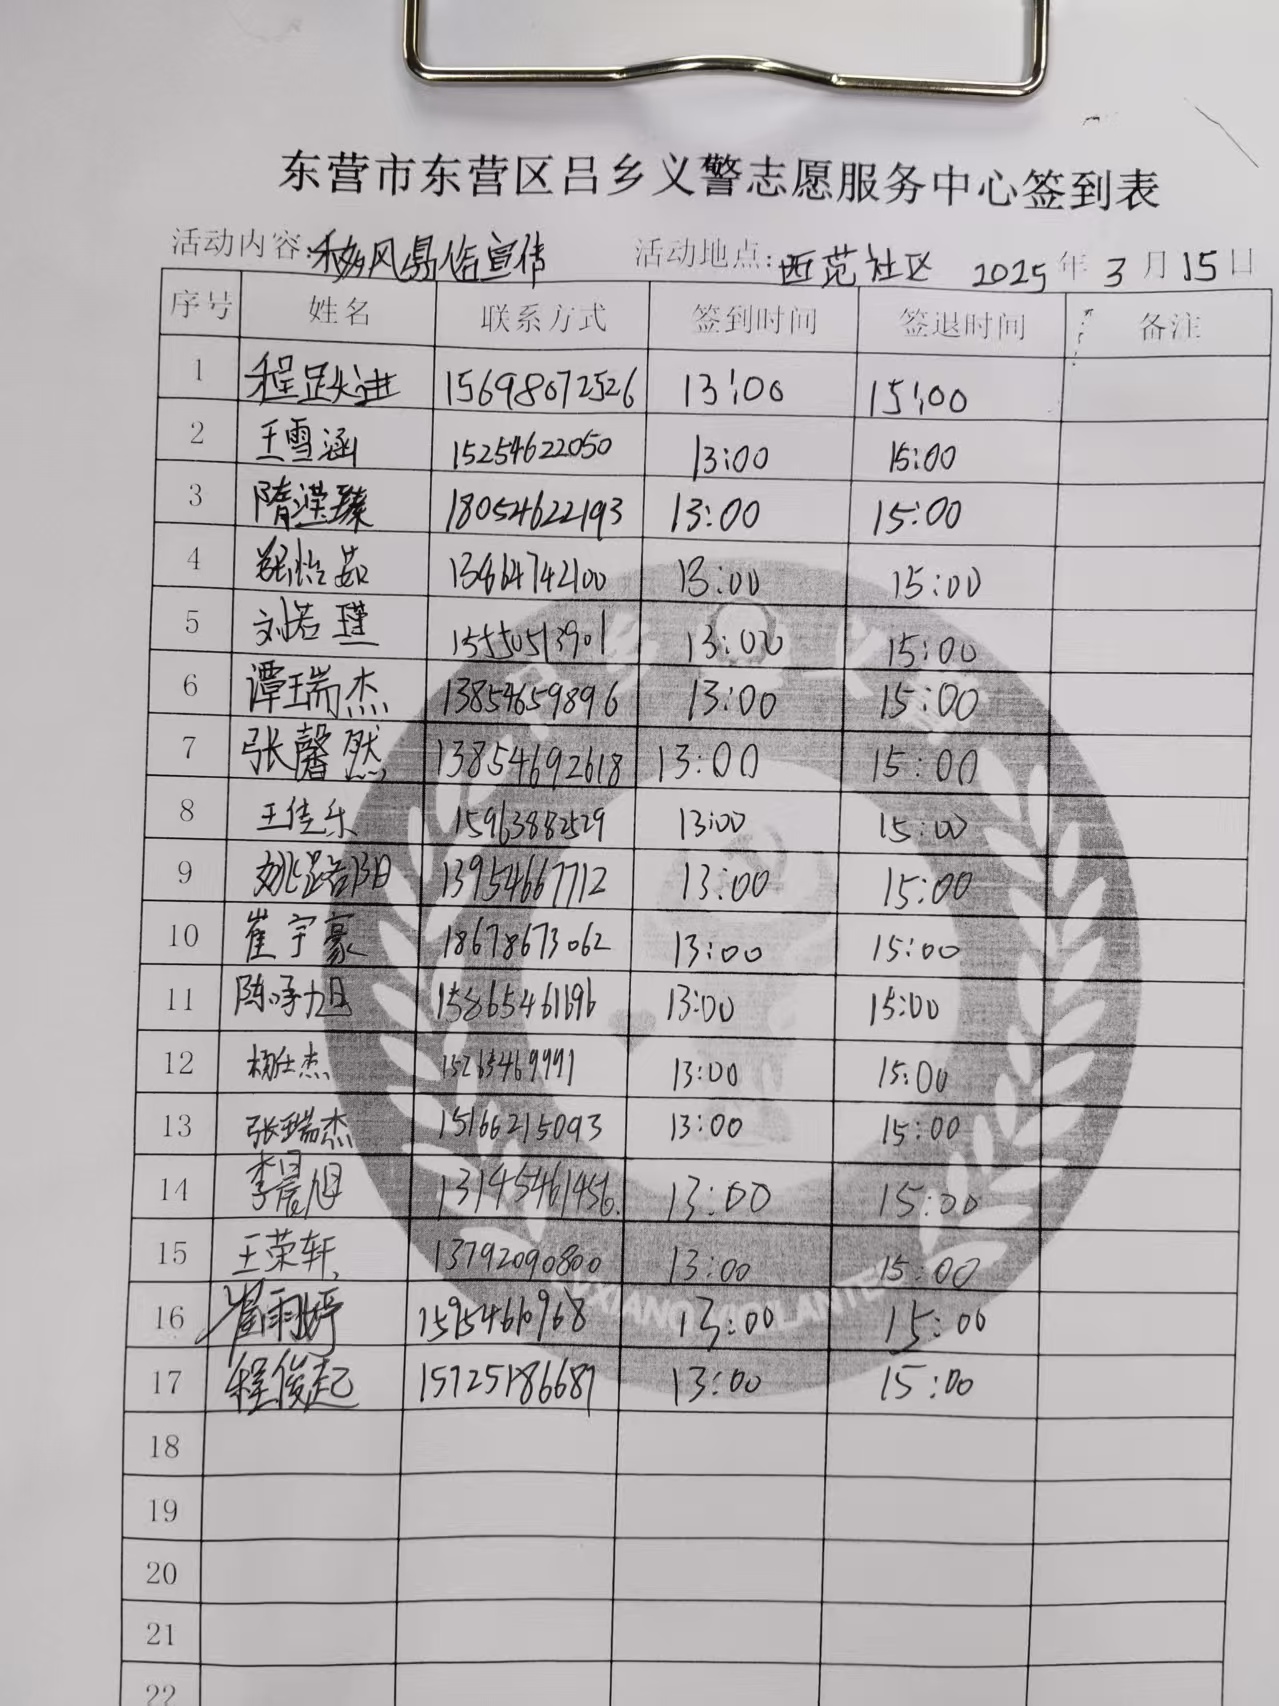 东营市东营区吕乡义警志愿服务中心签到表
活动内容:移风易俗宣传 活动地点:西范社区 2025年3月15日
序号 姓名 联系方式 签到时间 签退时间 备注
1 程跃进 15698072526 13:00 15:00
2 王雪涵 15254622050 13:00 15:00
3 隋滢臻 18054622193 13:00 15:00
4 郑怡茹 13864742100 13:00 15:00
5 刘若瑾 15550513901 13:00 15:00
6 谭瑞杰 13854659896 13:00 15:00
7 张馨然 13854692618 13:00 15:00
8 王佳乐 15963882529 13:00 15:00
9 姚路阳 13954667712 13:00 15:00
10 崔宇豪 18678673062 13:00 15:00
11 陈承旭 15865461696 13:00 15:00
12 杨仕杰 13:00 15:00
13 张瑞杰 15166215093 13:00 15:00
14 李晨旭 13145461456 13:00 15:00
15 王荣轩 13792090800 13:00 15:00
16 崔雨婷 13:00 15:00
17 程俊起 15725186687 13:00 15:00
18
19
20
21
22